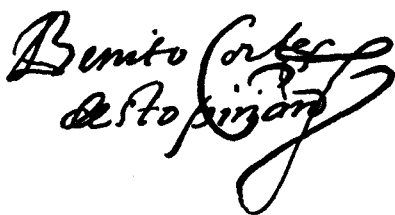 Benito Cortes
destopiñan